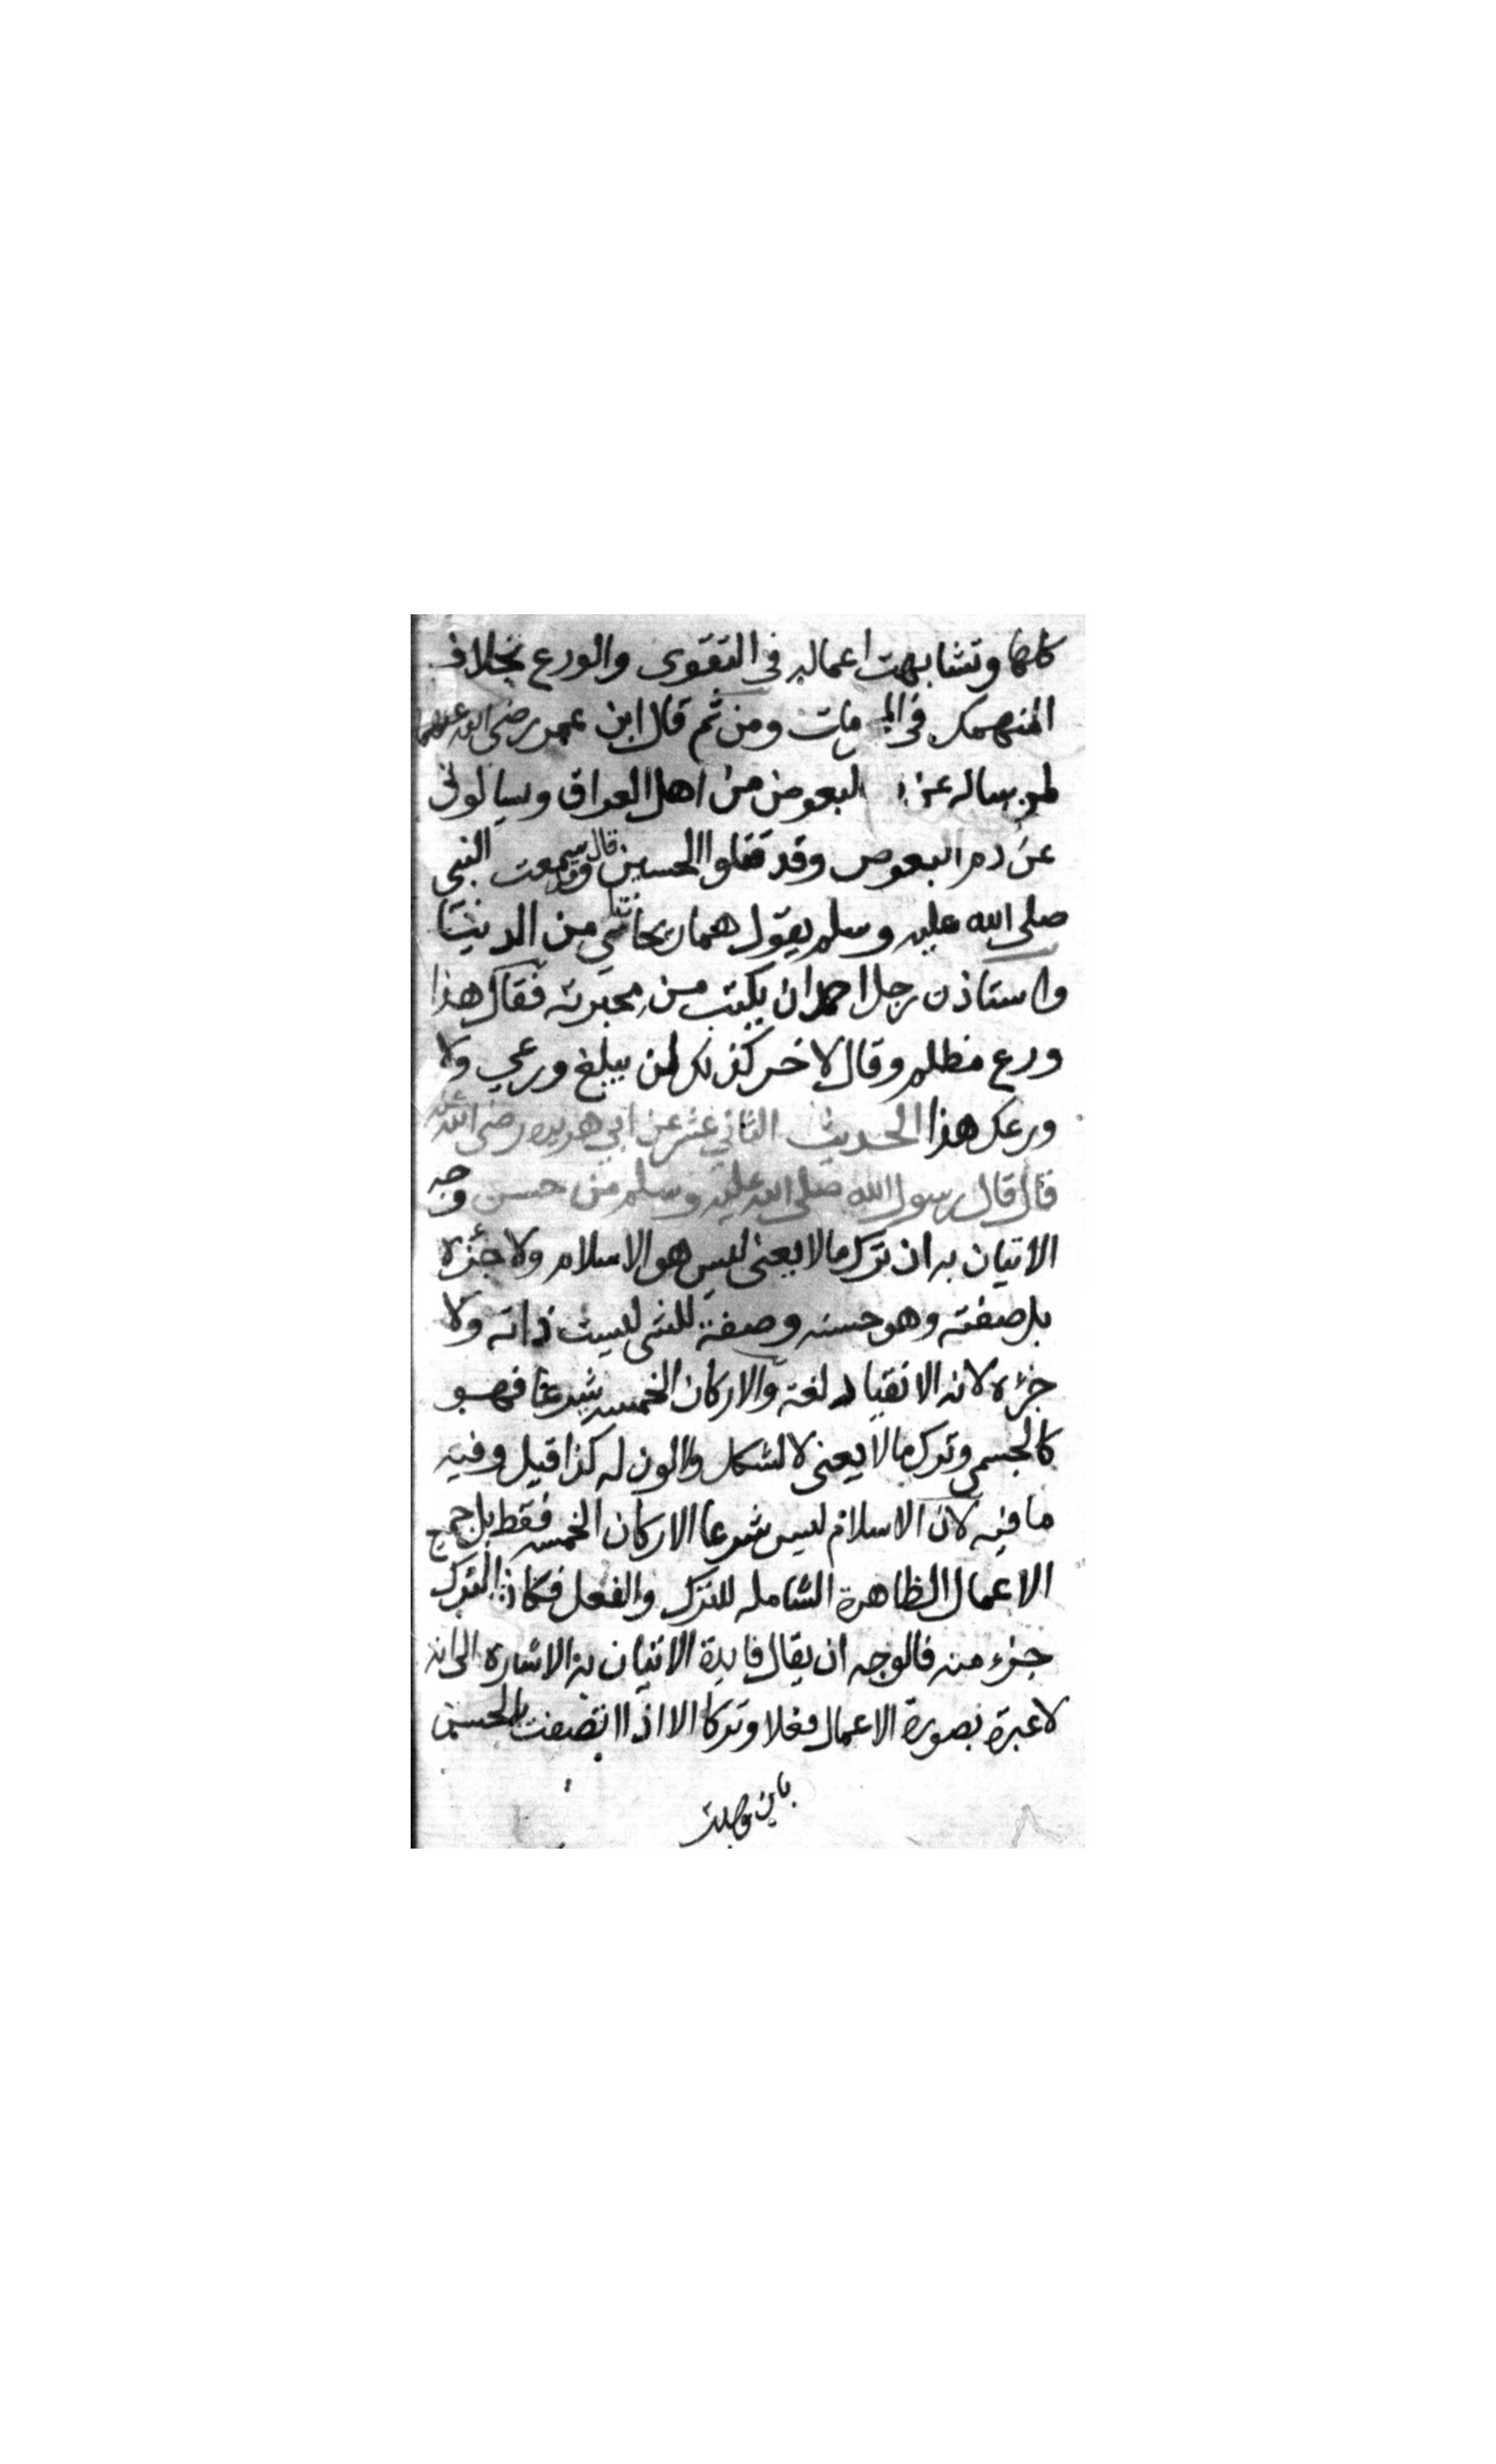 كلها وتشابهت اعماله في التقوى والورع بخلاف
المنهمك في ومن ثم قال ابن عمر رضى الله عنهما
لمن ساله عن البعوض من اهل العراق ويسالونى
عن دم البعوص وقد قتلوا الحسين قال وقد سمعت النبي
صلى الله عليه وسلم يقول هما ريحانتاي من الدنيا
واستاذن رجل احمد ان يكتب من محبرته فقال هذا
ورع مظلم وقال لاخر كذلك لمن يبلغ ورعي ولا
ورعك هذا الحديث الثاني عشر عن ابي هريره رضى الله عنه
قال قال رسول الله صلى الله عليه وسلم من حسن وجه
الاتيان به ان ترك مالا يعنى ليس هو الاسلام ولا جزئه
بل صفته وهو حسنه وصفة للشى ليست ذاته ولا
جزئه لانه الانقياد لغة والاركان الخمسه شرعا فهو
كالجسم وترك مالا يعنى لالشكل والون له كذا قيل وفيه
ما فيه لان الاسلام ليس شرعا الاركان الخمسه فقط بل جميع
الاعمال الظاهرة الشامله للترك والفعل فكان الترك
جزء منه فالوجه ان يقال فايدة الاتيان به الاشاره الى انه
لاعبرة بصورة الاعمال فعلا وتركا الا اذا اتصفت بالحسن
بان وجدت